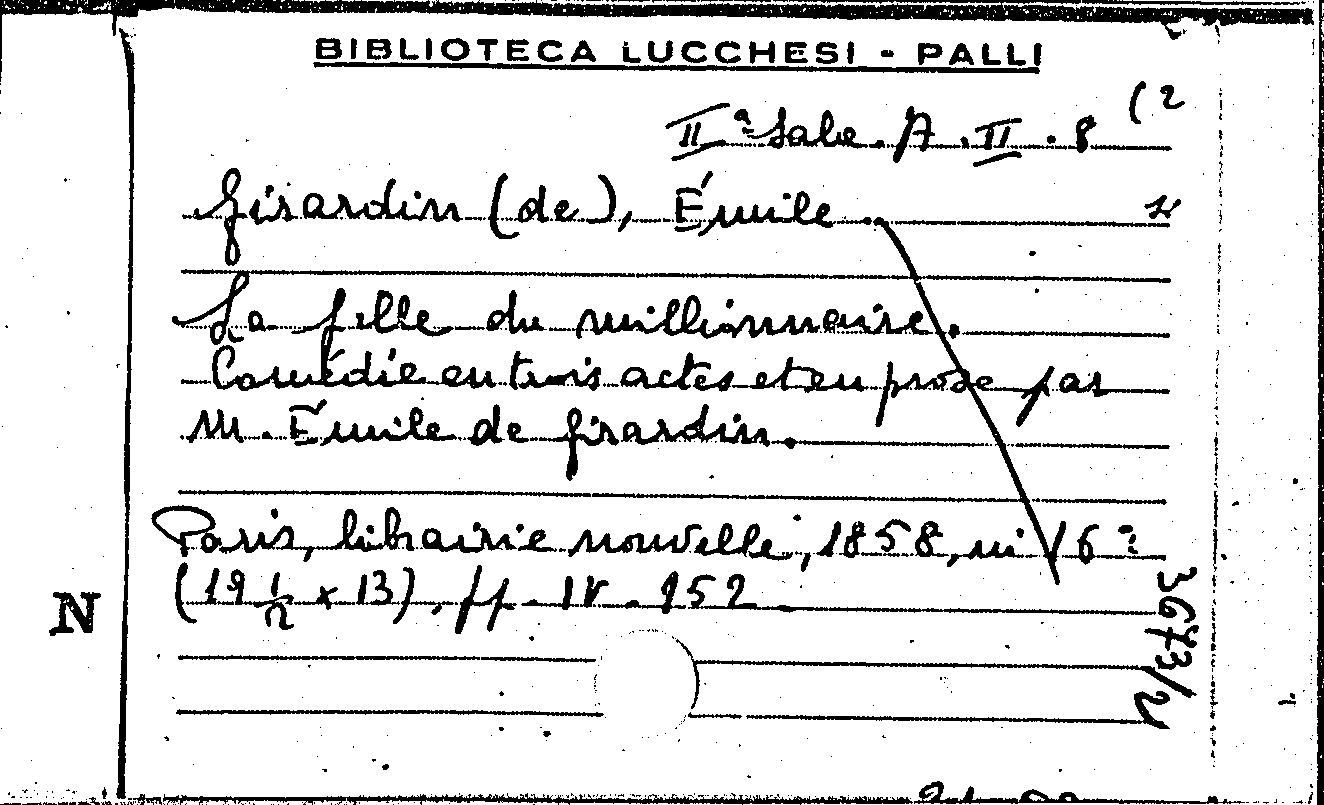 BIBLIOTECA LUCCHESI - PALLI
IIª Sala. A. II. 8 (2
Girardin (de), Émile..
La fille du millionnaire.
Comédie en trois actes et en prose par
M. Émile de Girardin.
Paris, librairie nouvelle, 1858, in 16º
(19 1/2 x 13), pp. IV - 152.
N
3673/2